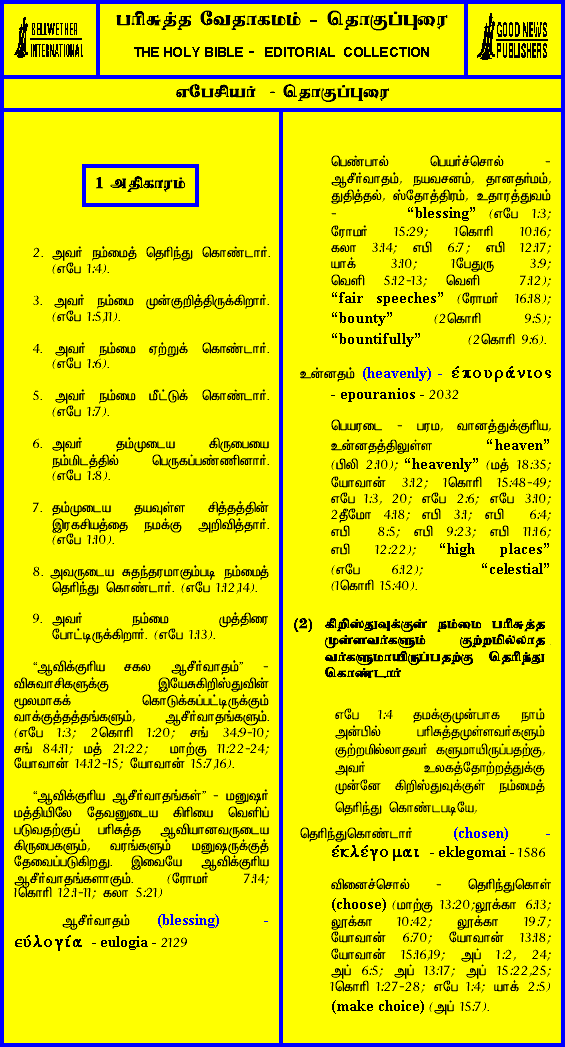 BELLWETHER
INTERNATIONAL
பரிசுத்த வேதாகமம் - தொகுப்புரை
THE HOLY BIBLE - EDITORIAL COLLECTION
GOOD NEWS
PUBLISHERS
எபேசியர் - தொகுப்புரை
1 அதிகாரம்
2. அவர் நம்மைத் தெரிந்து கொண்டார்.
(எபே 1:4).
3. அவர் நம்மை முன்குறித்திருக்கிறார்.
(எபே 1:5,11).
4. அவர் நம்மை ஏற்றுக் கொண்டார்.
(எபே 1:6).
5. அவர் நம்மை மீட்டுக் கொண்டார்.
(எபே 1:7).
6. அவர் தம்முடைய கிருபையை
நம்மிடத்தில் பெருகப்பண்ணினார்.
(எபே 1:8).
7. தம்முடைய தயவுள்ள சித்தத்தின்
இரகசியத்தை நமக்கு அறிவித்தார்.
(எபே 1:10).
8. அவருடைய சுதந்தரமாகும்படி நம்மைத்
தெரிந்து கொண்டார். (எபே 1:12,14).
9. அவர் நம்மை முத்திரை
போட்டிருக்கிறார். (எபே 1:13).
“ஆவிக்குரிய சகல ஆசீர்வாதம்” -
விசுவாசிகளுக்கு இயேசுகிறிஸ்துவின்
மூலமாகக் கொடுக்கப்பட்டிருக்கும்
வாக்குத்தத்தங்களும், ஆசீர்வாதங்களும்.
(எபே 1:3; 2கொரி 1:20; சங் 34:9-10;
சங் 84:11; மத் 21:22; மாற்கு 11:22-24;
யோவான் 14:12-15; யோவான் 15:7,16).
“ஆவிக்குரிய ஆசீர்வாதங்கள்” - மனுஷர்
மத்தியிலே தேவனுடைய கிரியை வெளிப்
படுவதற்குப் பரிசுத்த ஆவியானவருடைய
கிருபைகளும், வரங்களும் மனுஷருக்குத்
தேவைப்படுகிறது. இவையே ஆவிக்குரிய
ஆசீர்வாதங்களாகும். (ரோமர் 7:14;
1கொரி 12:1-11; கலா 5:21)
ஆசீர்வாதம் (blessing) -
εὐλογία - eulogia - 2129
பெண்பால் பெயர்ச்சொல் -
ஆசீர்வாதம், நயவசனம், தானதர்மம்,
துதித்தல், ஸ்தோத்திரம், உதாரத்துவம்
- “blessing” (எபே 1:3;
ரோமர் 15:29; 1கொரி 10:16;
கலா 3:14; எபி 6:7; எபி 12:17;
யாக் 3:10; 1பேதுரு 3:9;
வெளி 5:12-13; வெளி 7:12);
“fair speeches” (ரோமர் 16:18);
“bounty” (2கொரி 9:5);
“bountifully” (2கொரி 9:6).
உன்னதம் (heavenly) - ἐπουράνιος
- epouranios - 2032
பெயரடை - பரம, வானத்துக்குரிய,
உன்னதத்திலுள்ள “heaven”
(பிலி 2:10); “heavenly” (மத் 18:35;
யோவான் 3:12; 1கொரி 15:48-49;
எபே 1:3, 20; எபே 2:6; எபே 3:10;
2தீமோ 4:18; எபி 3:1; எபி 6:4;
எபி 8:5; எபி 9:23; எபி 11:16;
எபி 12:22); “high places”
(எபே 6:12); “celestial”
(1கொரி 15:40).
(2) கிறிஸ்துவுக்குள் நம்மை பரிசுத்த
முள்ளவர்களும் குற்றமில்லாத
வர்களுமாயிருப்பதற்கு தெரிந்து
கொண்டார்
எபே 1:4 தமக்குமுன்பாக நாம்
அன்பில் பரிசுத்தமுள்ளவர்களும்
குற்றமில்லாதவர் களுமாயிருப்பதற்கு,
அவர் உலகத்தோற்றத்துக்கு
முன்னே கிறிஸ்துவுக்குள் நம்மைத்
தெரிந்து கொண்டபடியே,
தெரிந்துகொண்டார் (chosen) -
ἐκλέγομαι - eklegomai - 1586
வினைச்சொல் - தெரிந்துகொள்
(choose) (மாற்கு 13:20;லூக்கா 6:13;
லூக்கா 10:42; லூக்கா 19:7;
யோவான் 6:70; யோவான் 13:18;
யோவான் 15:16,19; அப் 1:2, 24;
அப் 6:5; அப் 13:17; அப் 15:22,25;
1கொரி 1:27-28; எபே 1:4; யாக் 2:5)
(make choice) (அப் 15:7).